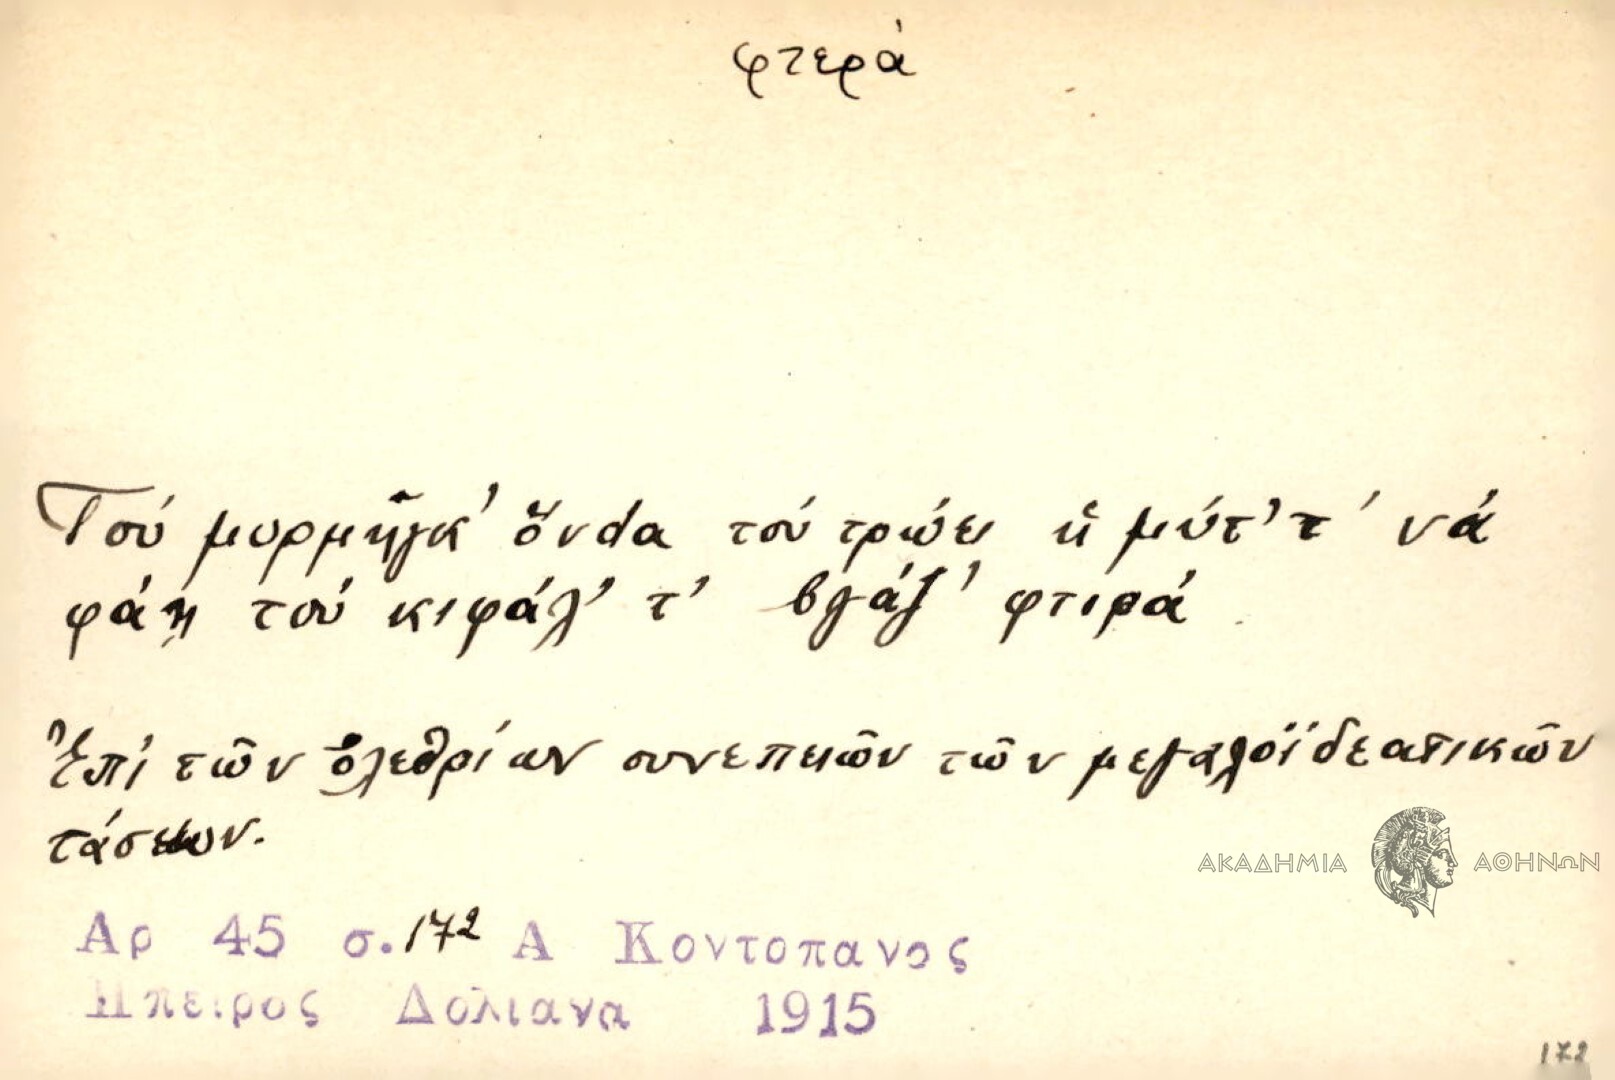 φτερά
Τού μυρμῆγκ' ὅνdα τού τρώει ἡ μύτ' τ' νά
φάη τού κιφάλ' τ' βγάζ' φτιρά
Ἐπί τῶν ὀλεθρίων συνεπειῶν τῶν μεγαλοϊδεατικῶν
τάσεων.
ΑΚΑΔΗΜΙΑ ΑΘΗΝΩΝ
Αρ 45 σ. 172 Α Κοντοπανος
Ηπειρος Δολιανα 1915
172